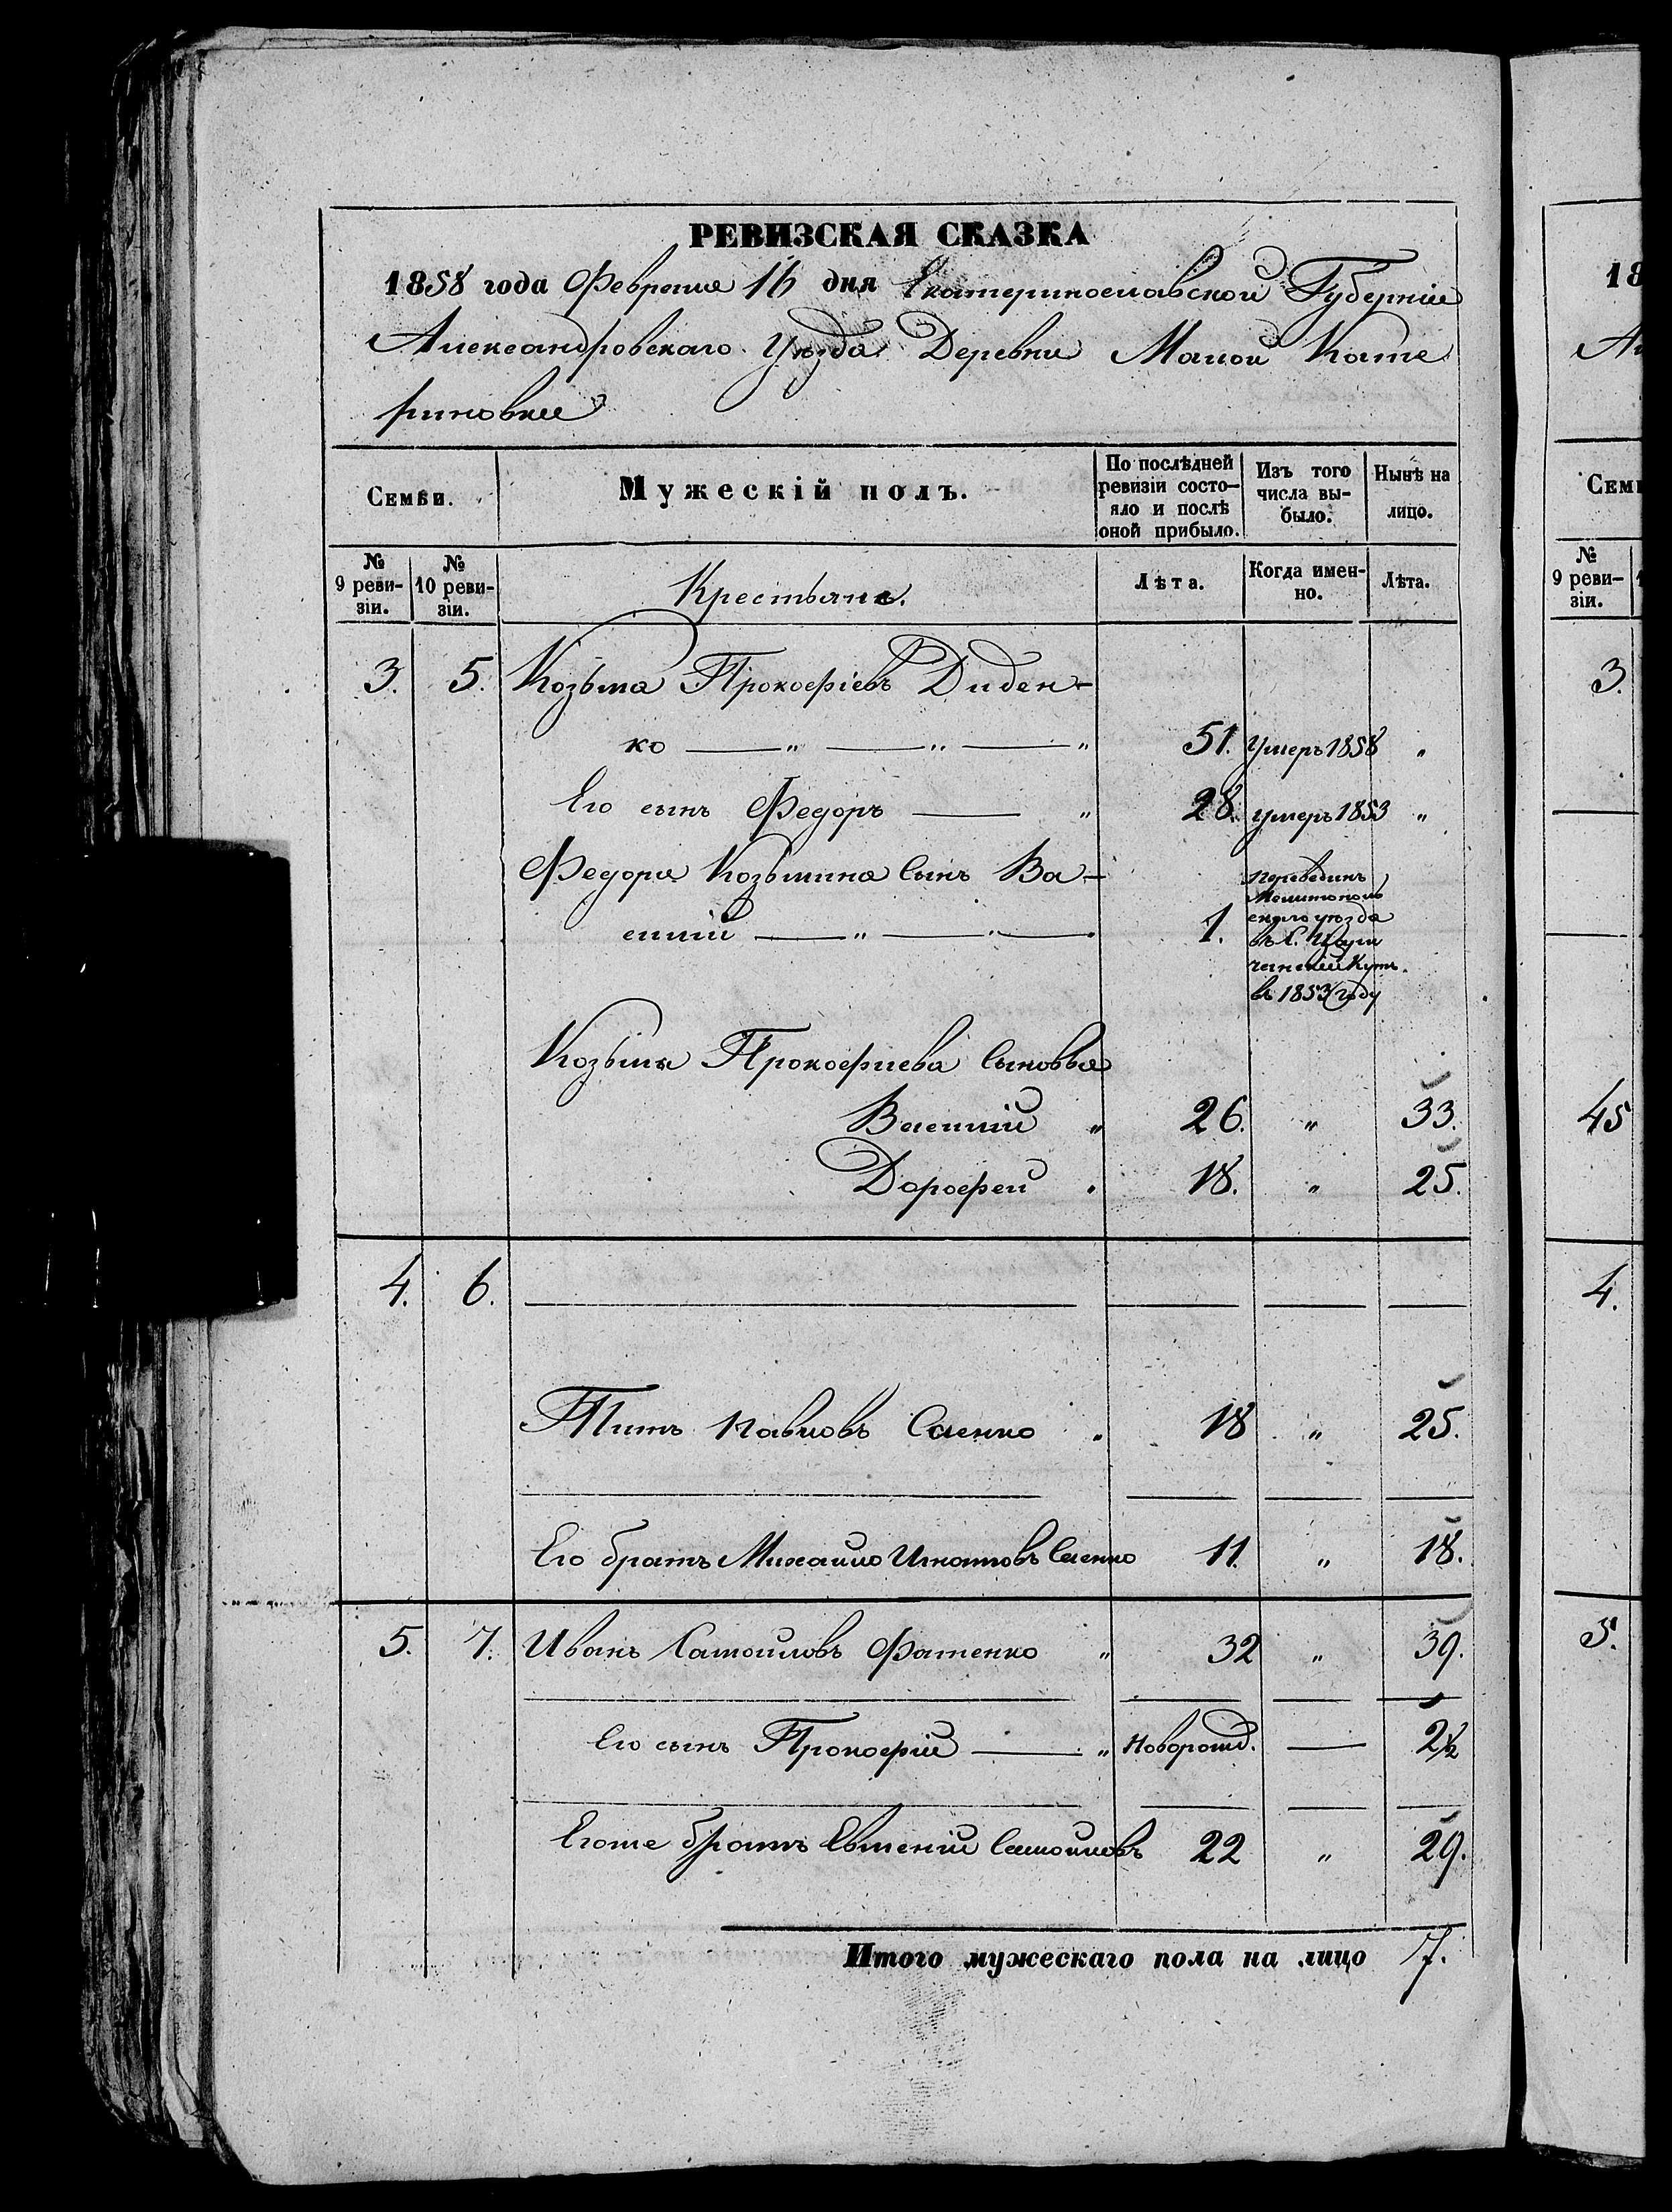 РЕВИЗСКАЯ СКАЗКА
1858 года Февраля 16 дня Екатеринославской Губерніи
Александровскаго Уѣзда Деревни Малой Кате
риновки
Семьи. Мужескій полъ. По послѣдней ревизіи состо- яло и послѣ оной прибыло. Изъ того числа вы- было. Нынѣ на лицо.
№ 9 реви- зіи. № 10 реви- зіи. Крестьяне. Лѣта. Когда имен- но. Лѣта.
3. 5. Козьма Прокофіевъ Диден-
ко — " — " — " 51. Умеръ 1858 "
Его сынъ Федоръ — " 28. умеръ 1853 "
Федора Козьмина Сынъ Ва-
силій — " — " — 1. перевединъ Мелитополь скаго уѣзда въ С. Кут. в 1853 году
Козьмы Прокофиева Сыновья
Василій " 26. " 33.
Дорофей " 18. " 25.
4. 6. — — — —
Титъ Павловъ Саенко " 18 " 25.
Его братъ Михайло Игнатовъ Саенко 11. " 18.
5. 7. Иванъ Самойловъ Фатенко " 32 " 39.
Его сынъ Прокофій — " Новорожд. — 2½
Егоже братъ Евгеній Самойловъ 22 " 29.
Итого мужескаго пола на лицо 7.
18
Ал
Семь
№ 9 реви- зіи. 1
3.
45
4.
5.